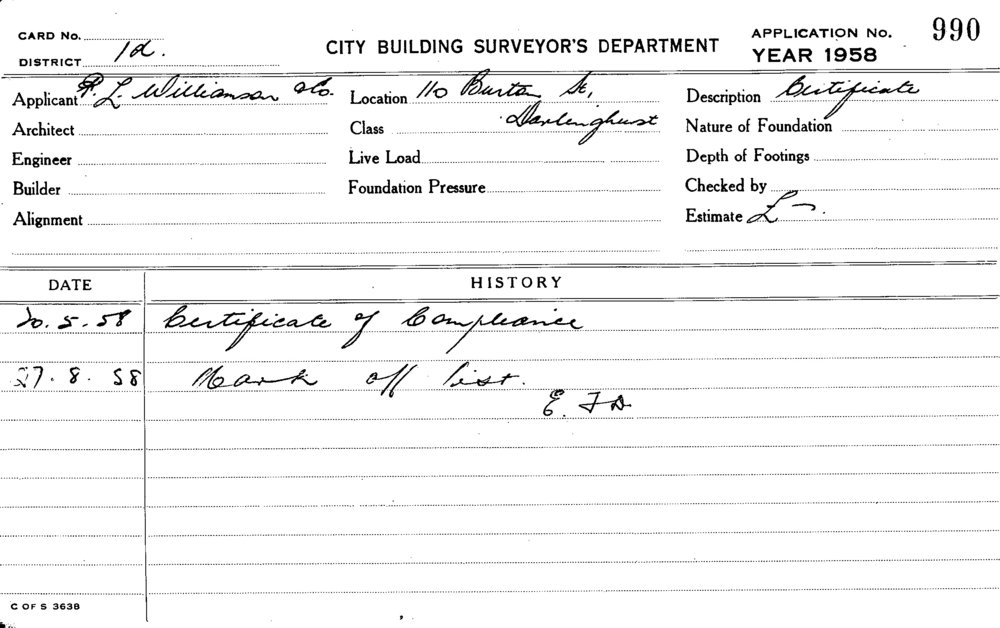 CARD No.
DISTRICT 1d.
CITY BUILDING SURVEYOR'S DEPARTMENT
APPLICATION No. 990
YEAR 1958
Applicant R. L. Williamson & Co.
Location 110 Burton St,
Darlinghurst
Description Certificate
Architect
Class
Nature of Foundation
Engineer
Live Load
Depth of Footings
Builder
Foundation Pressure
Checked by
Alignment
Estimate £ —.
DATE HISTORY
20. 5. 58 Certificate of Compliance
27. 8. 58 Mark off list.
E. F D.
C OF S 3638